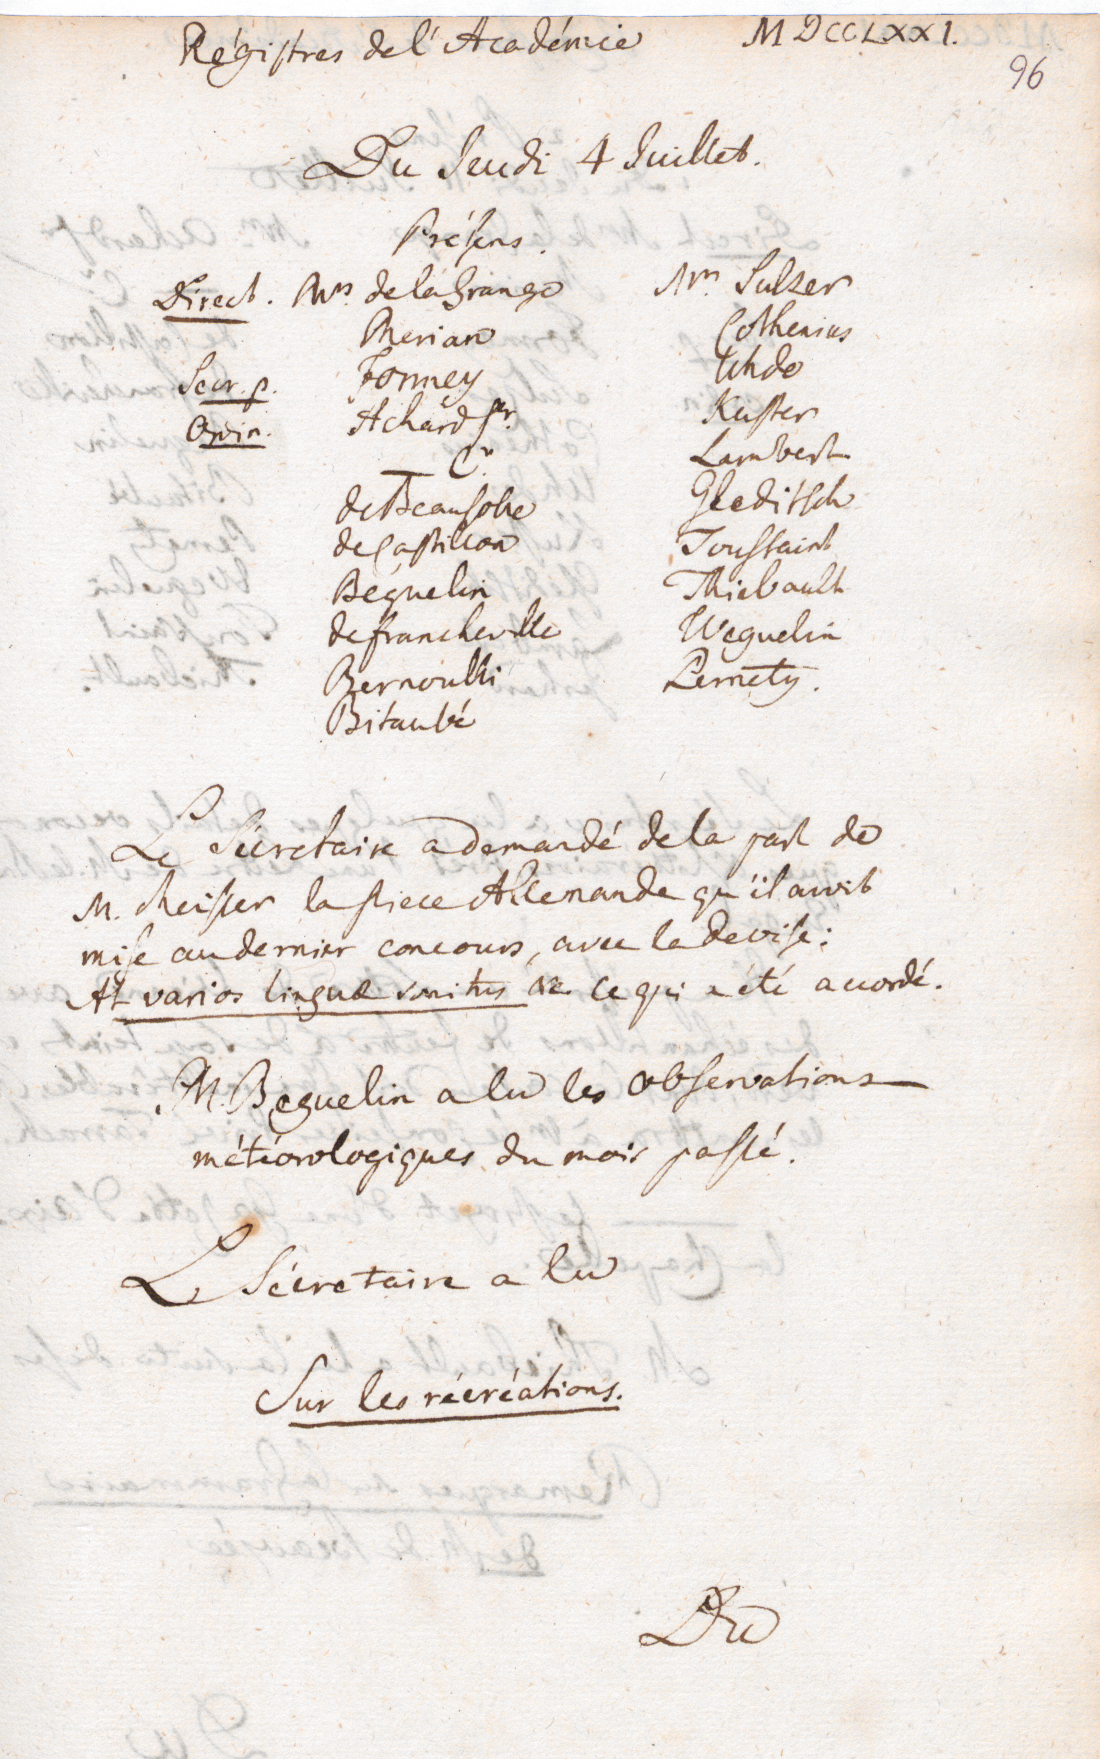 Régistres de l'Académie MDCCLXXI.
96
Du Jeudi 4 Juillet.
Présens.
Direct. Mrs de la Grange
Merian
Secr. p. Formey
Ordin. Achard Sr.
— Cr
de Beausobre
de Castillon
Béguelin
de Francheville
Bernoulli
Bitaubé
Mrs Sulzer
Cothenius
Uhde
Kuster
Lambert
Gleditsch
Toussaint
Thiebault
Weguelin
Pernety.
Le Sécretaire a demandé de la part de
M. Meister la piece Allemande qu'il avoit
mise au dernier concours, avec la devise:
At varios linguæ sonitus &c. Ce qui a été accordé.
M. Beguelin a lu les observations
météorologiques du mois passé.
Le Sécretaire a lu
Sur les récréations.
Du